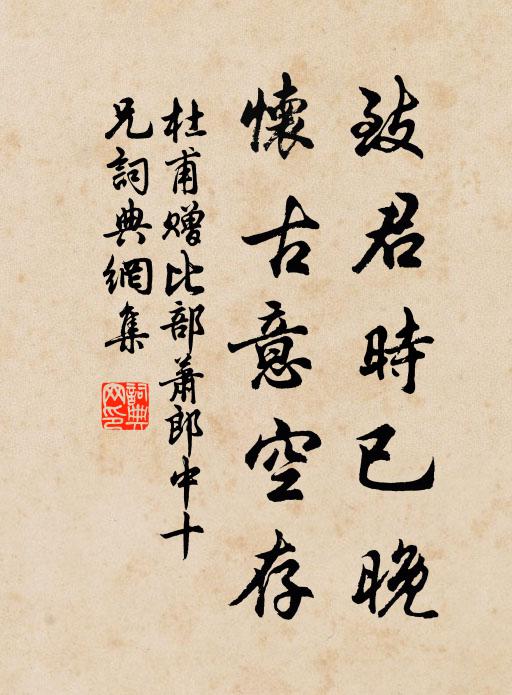 致君時已晚
懷古意空存
杜甫贈比部蕭郎中十
兄詞典網集
詞典
网印